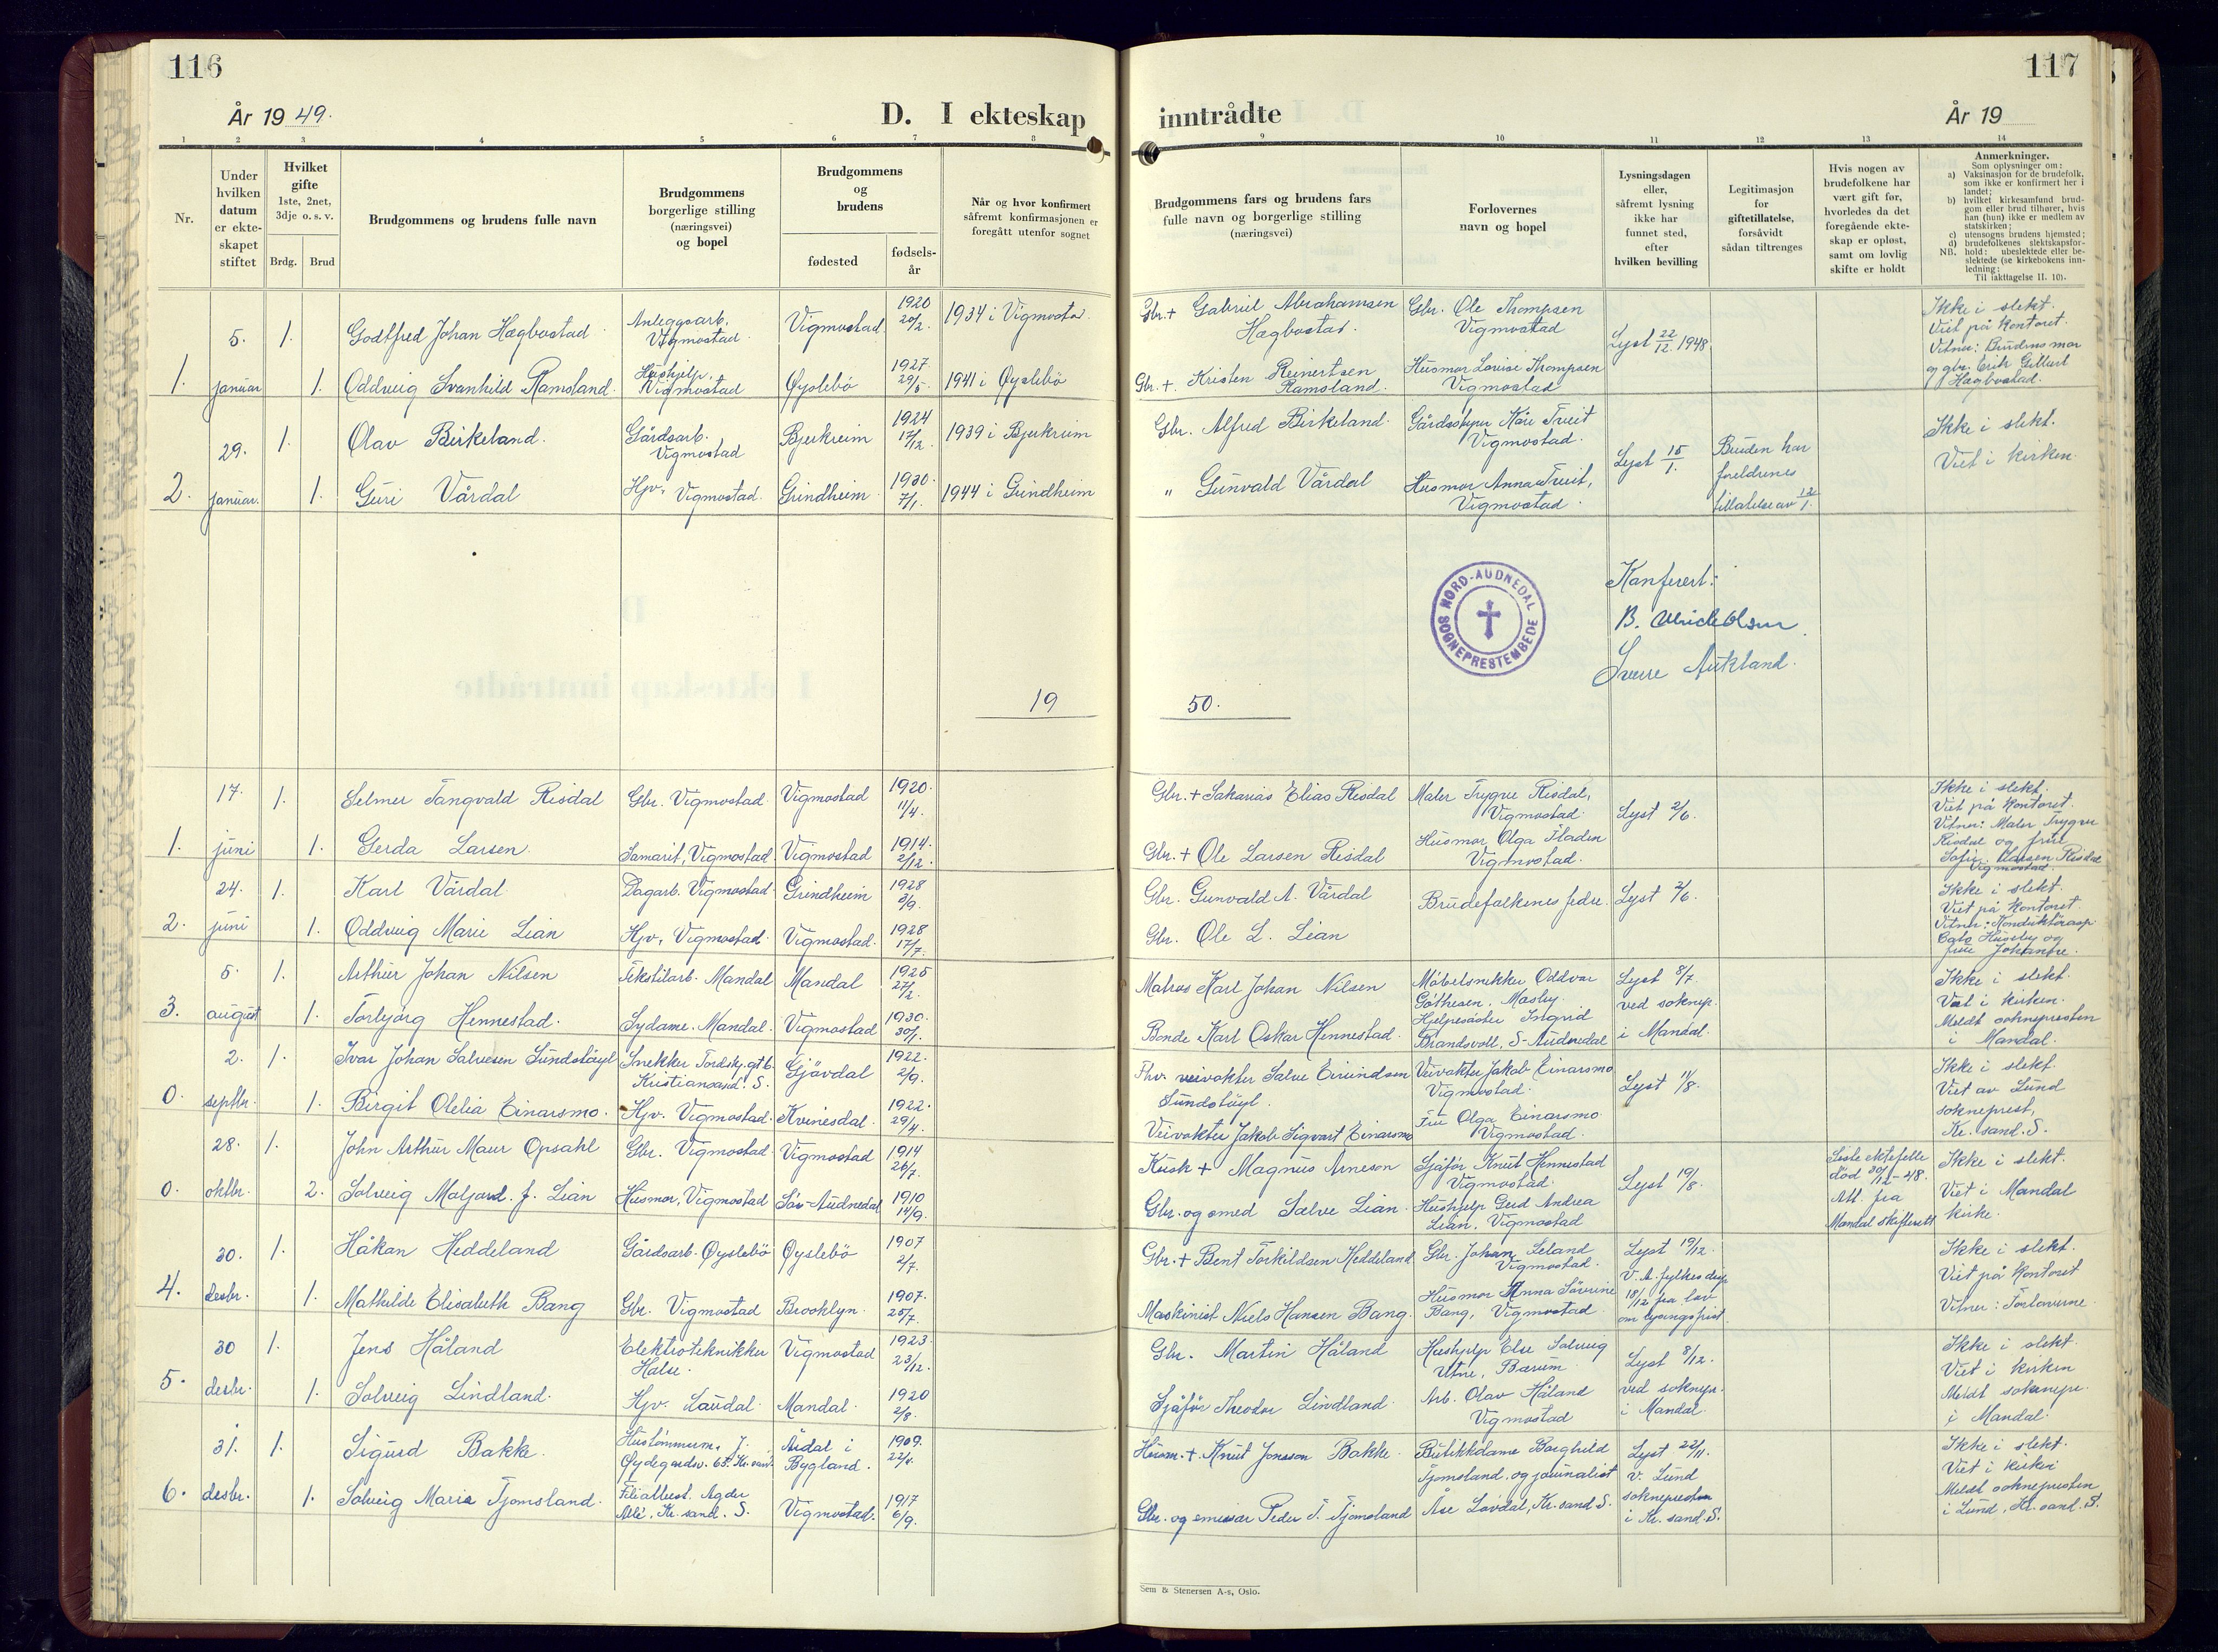 116
År 1949.
D. I ekteskap
1 2 3 4 5 6 7 8
Nr.
Under hvilken datum er ekte-skapet stiftet
Hvilket gifte
1ste, 2net, 3dje o. s. v.
Brdg. Brud
Brudgommens og brudens fulle navn
Brudgommens borgerlige stilling (næringsvei) og bopel
Brudgommens og brudens
fødested
fødsels-år
Når og hvor konfirmert såfremt konfirmasjonen er foregått utenfor sognet
5. 1. Godtfred Johan Hægbostad Anleggsarb. Vigmostad Vigmostad 1920 20/2. 1934 i Vigmostad.
1. januar 1. Oddveig Svanhild Ramsland. Hushjelp, Vigmostad Øyslebö 1927. 29/5. 1941 i Øyslebö
29. 1. Olav Birkeland. Gårdsarb. Vigmostad Bjerkreim 1924 17/12. 1939 i Bjerkreim
2. januar. 1. Guri Vårdal Hjv. Vigmostad. Grindheim. 1930. 7/1. 1944 i Grindheim
19
17. 1. Selmer Tangvald Risdal Gbr. Vigmostad. Vigmostad 1920. 11/4.
1. juni 1. Gerda Larsen. Samarit, Vigmostad Vigmostad 1914. 2/12.
24. 1. Karl Vårdal. Dagarb. Vigmostad. Grindheim 1928 3/9.
2. juni 1. Oddveig Marie Lian Hjv. Vigmostad. Vigmostad. 1928 17/7.
5. 1. Arthur Johan Nilsen Tekstilarb. Mandal Mandal 1925 27/2.
3. august 1. Torbjørg Hennestad. Sydame. Mandal. Vigmostad 1930. 30/1.
2. 1. Ivar Johan Salvesen Sundstöyl Snekker Tordskj.gt 6. Kristiansand. S. Gjövdal 1922. 2/9.
0. septbr. 1. Birgit Olelia Einarsmo. Hjv. Vigmostad. Kvinesdal. 1922. 29/4.
28. 1. John Arthur Maur Opsahl Gbr. Vigmostad. Vigmostad 1914 26/7.
0. oktbr. 2. Solveig Maljard. f. Lian Husmor, Vigmostad Sör-Audnedal 1910 14/9.
30. 1. Håkan Heddeland Gårdsarb. Øyslebö Øyslebö 1907 2/7.
4. desbr. 1. Mathilde Elisabeth Bang Gbr. Vigmostad Brooklyn. 1907. 25/7.
30 1. Jens Håland Elektrotekniker Halse. Vigmostad 1923. 23/12.
5. desbr. 1. Solveig Lindland. Hjv. Laudal. Mandal. 1920 2/8.
31. 1. Sigurd Bakke. Hustömmerm. J. Øydegardsv. 65. Kr.sand. Åsdal i Bygland. 1909. 22/4.
6. desbr. 1. Solveig Marie Tjomsland. Filialbest. Agder Allé, Kr. sand. S. Vigmostad. 1917 6/9.
117
inntrådte
År 19
9 10 11 12 13 14
Brudgommens fars og brudens fars fulle navn og borgerlige stilling (næringsvei)
Forlovernes navn og bopel
Lysningsdagen eller, såfremt lysning ikke har funnet sted, efter hvilken bevilling
Legitimasjon for giftetillatelse, forsåvidt sådan tiltrenges
Hvis nogen av brudefolkene har vært gift før, hvorledes da det foregående ekte-skap er opløst, samt om lovlig skifte er holdt
Anmerkninger.
Som oplysninger om:
a) Vaksinasjon for de brudefolk, som ikke er konfirmert her i landet;
b) hvilket kirkesamfund brud-gom eller brud tilhører, hvis han (hun) ikke er medlem av statskirken;
c) utensogns brudens hjemsted;
d) brudefolkenes slektskapsfor-hold: ubeslektede eller be-slektede (se kirkebokens inn-ledning;
NB. Til iakttagelse II. 10).
Gbr. + Gabriel Abrahamsen Hægbostad. Gbr. Ole Thompsen Vigmostad Lyst 22/12. 1948, Ikke i slekt. Viet på kontoret. Vitner: Brudens mor og gbr. Erik Gillert Hægbostad.
Gbr. +. Kristen Reinertsen Ramsland. Husmor Lovise Thompsen Vigmostad
Gbr. Alfred Birkeland. Gårdsstyrer Kåre Treit Vigmostad. Lyst 15/1. Bruden har foreldrenes tillatelse av 12/1. Ikke i slekt. Viet i kirken.
" Gunvald Vårdal Husmor Anna Treit, Vigmostad.
NORD-AUDNEDAL SOGNEPRESTEMBEDE
Konferert:
B. Ulrich Olsen.
Sverre Aukland.
50.
Gbr. + Sakarias Elias Risdal Maler Trygve Risdal, Vigmostad. Lyst 2/6. Ikke i slekt. Viet på kontoret. Vitner: Maler Trygve Risdal og frue Sofie Larsen Risdal Vigmostad.
Gbr. + Ole Larsen Risdal Husmor Olga Fladen Vigmostad.
Gbr. Gunvald A. Vårdal Brudefolkenes fedre. Lyst 2/6. Ikke i slekt. Viet på kontoret. Vitner: Konduktörasp. Husøby og frue Johanne.
Gbr. Ole L. Lian
Matros Karl Johan Nilsen Möbelsnekker Oddvar Göthesen, Mosby. Lyst 8/7. ved soknepr. i Mandal. Ikke i slekt. Viet i kirken. Meldt soknepresten i Mandal.
Bonde Karl Oskar Hennestad. Hjelpesöster Ingrid Brandsvoll, S-Audnedal
Fhv. veivokter Salve Eivindsen Sundstöyl. Veivokter Jakob Einarsmo Vigmostad. Lyst 11/8. Ikke i slekt. Viet av Lund sokneprest, Kr. sand. S.
Veivokter Jakob Sigvart Einarsmo Fru Olga Einarsmo Vigmostad.
Kusk + Magnus Arneson Sjåför Knut Hennestad Vigmostad. Lyst 19/8. Siste ektefelle död 30/12-48. Att. fra Mandal skifterett Ikke i slekt. Viet i Mandal kirke.
Gbr. og smed Salve Lian. Hushjelp Gerd Andrea Lian, Vigmostad
Gbr. + Bent Torkildsen Heddeland Gbr. Johan Leland Vigmostad. Lyst 19/12. V. A. fylkes disp 18/12 fra lov om lysingsfrist. Ikke i slekt. Viet på kontoret Vitner: Forloverne.
Maskinist Niels Hansen Bang. Husmor Anna Sövrine Bang, Vigmostad
Gbr. Martin Håland Hushjelp Else Solveig Utne, Bærum Lyst 8/12. ved soknepr. i Mandal. Ikke i slekt. Viet i kirken Meldt soknepr. i Mandal.
Sjåför Theodor Lindland. Arb. Olav Håland Vigmostad
Husm. +. Knut Jonsson Bakke. Butikkdame Borghild Tjomsland, og journalist Åse Lövdal, Kr.sand S. Lyst 22/11. v. Lund soknepresten i Kr. sand. S. Ikke i slekt. Viet i kirken Meldt soknepresten i Lund, Kr. sand. S.
Gbr. og emissær Peder T. Tjomsland
Sem & Stenersen A-s, Oslo.